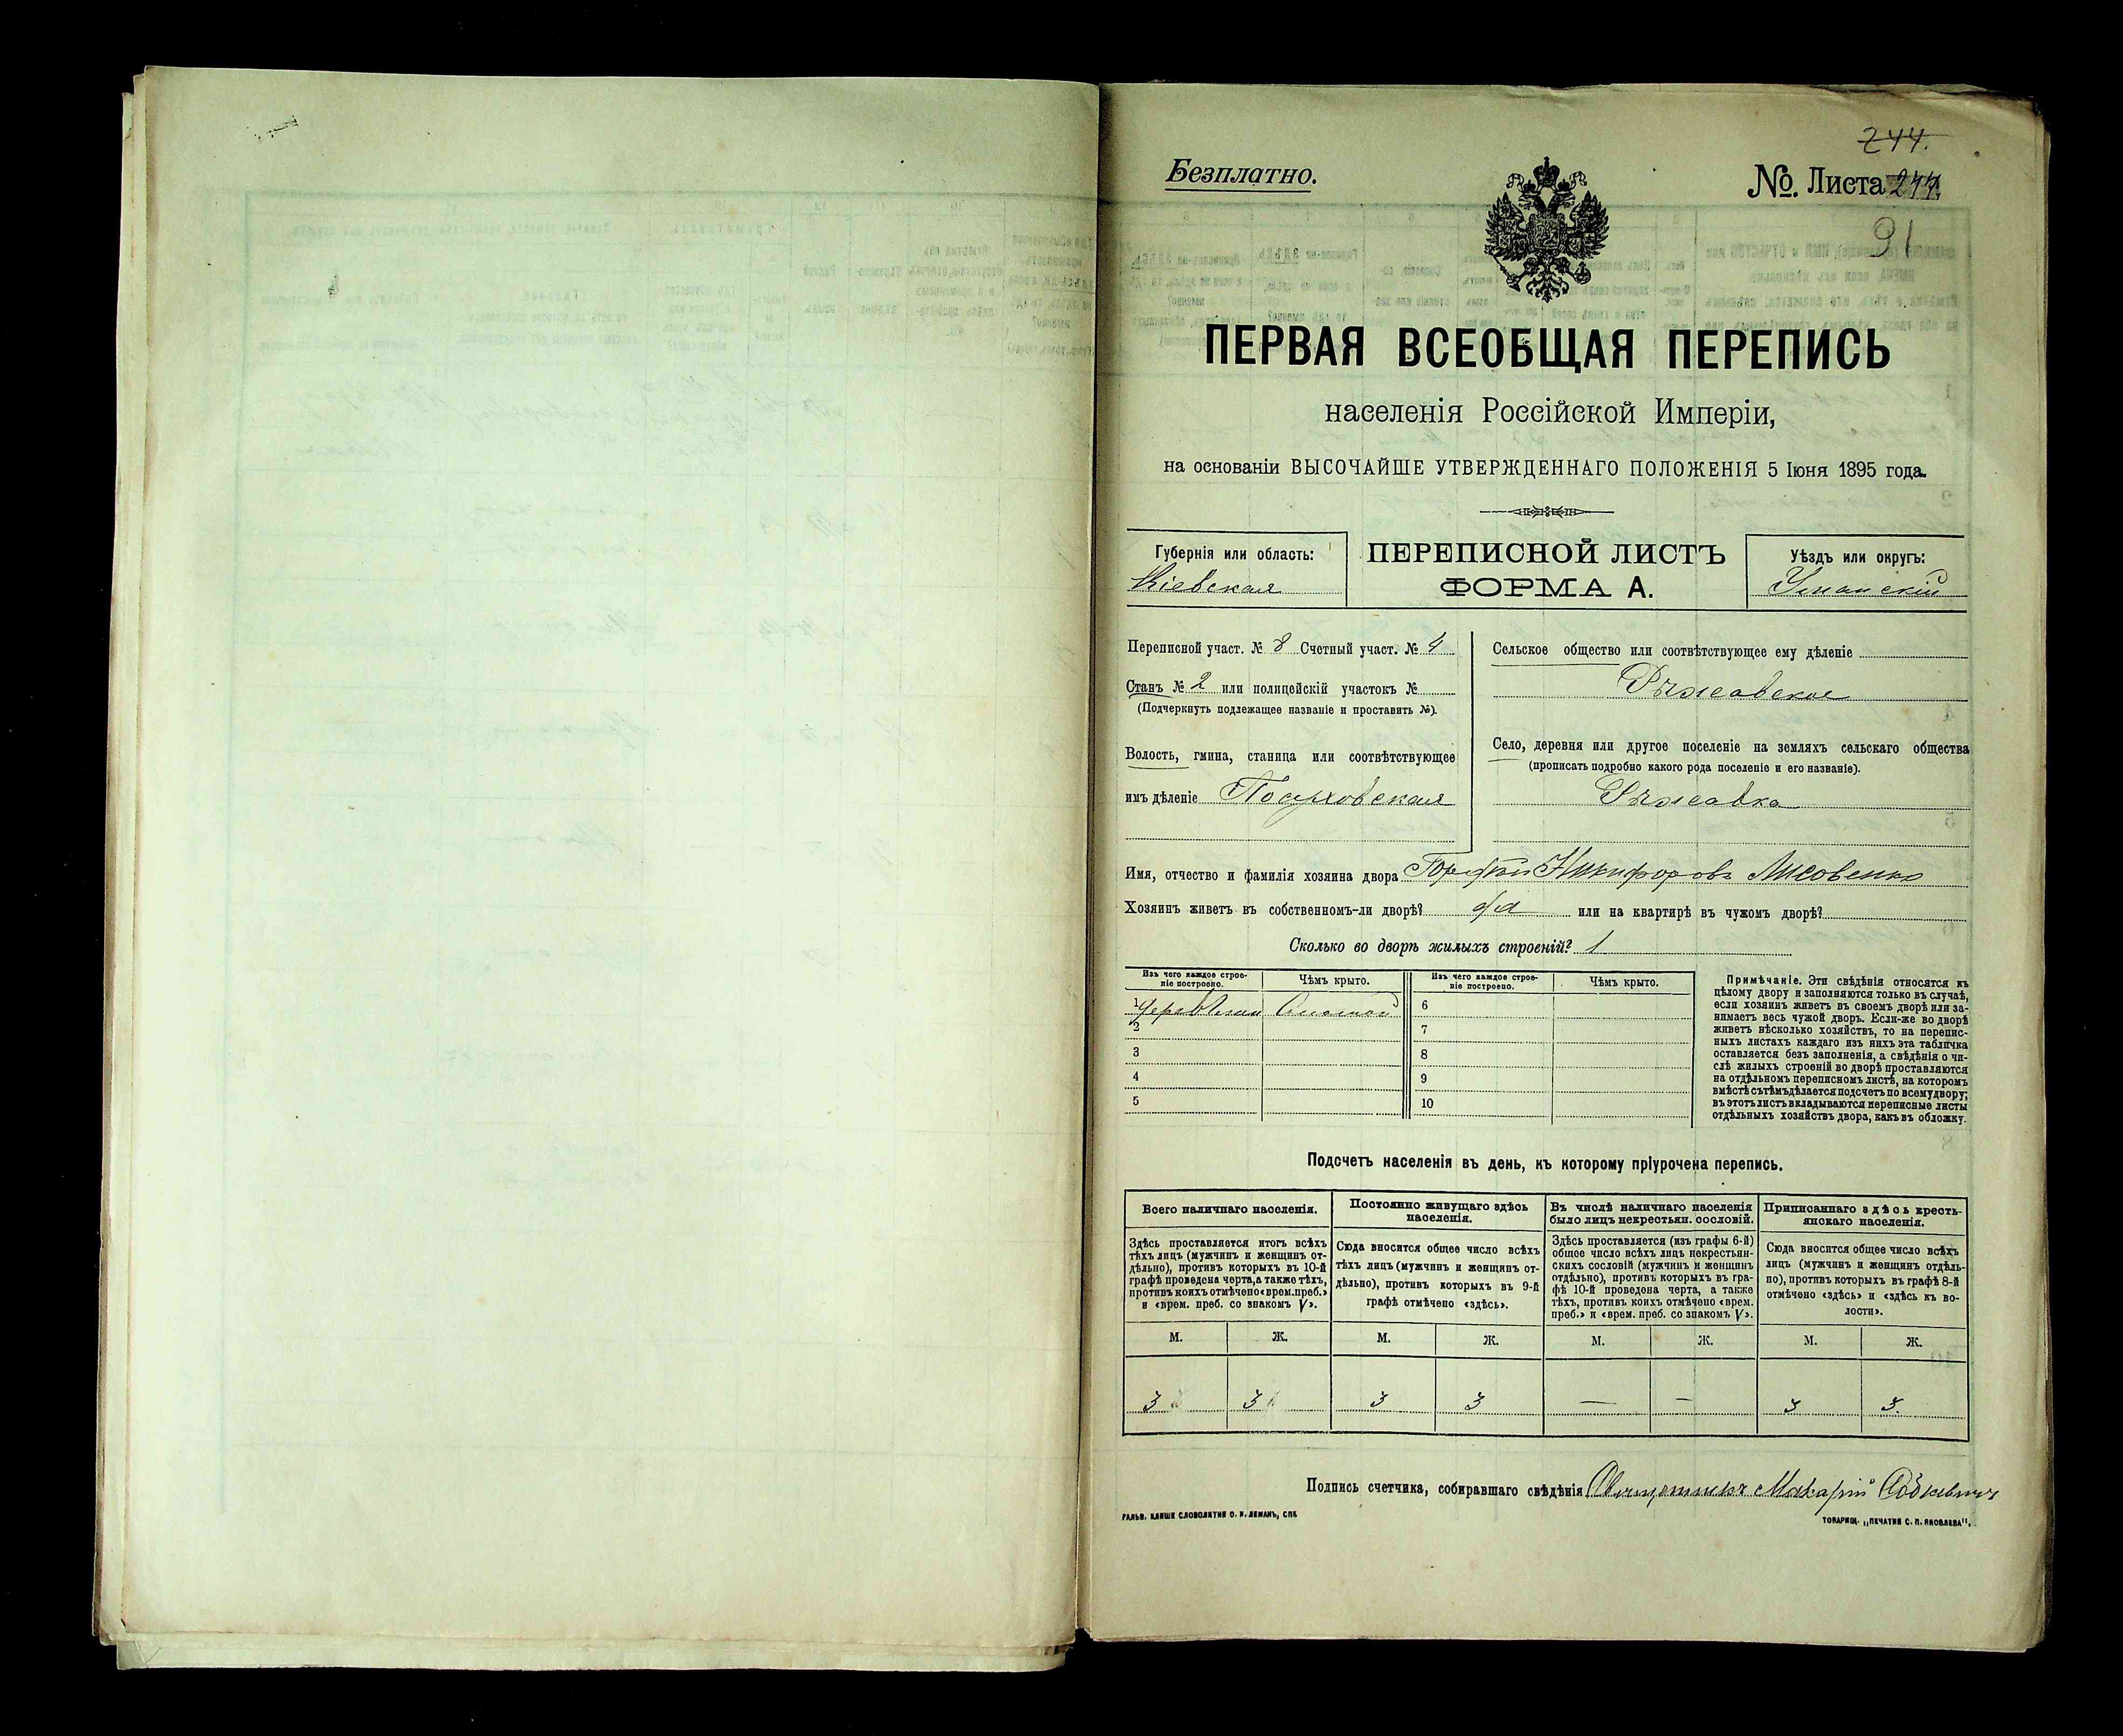 244.
Безплатно.
№. Листа 244.
91
ПЕРВАЯ ВСЕОБЩАЯ ПЕРЕПИСЬ
населенія Россійской Имперіи,
на основаніи ВЫСОЧАЙШЕ УТВЕРЖДЕННАГО ПОЛОЖЕНІЯ 5 Іюня 1895 года.
Губернія или область:
Кіевская
ПЕРЕПИСНОЙ ЛИСТЪ
ФОРМА А.
Уѣздъ или округъ:
Уманскій
Переписной участ. № 8 Счетный участ. № 4
Станъ № 2 или полицейскій участокъ №
(Подчеркнуть подлежащее названіе и проставить №).
Волость, гмина, станица или соотвѣтствующее
имъ дѣленіе
Сельское общество или соотвѣтствующее ему дѣленіе
Ряжавское
Село, деревня или другое поселеніе на земляхъ сельскаго общества
(прописать подробно какого рода поселеніе и его названіе).
Ряжавка
Имя, отчество и фамилія хозяина двора Никифоровъ Лисовенко
Хозяинъ живетъ въ собственномъ-ли дворѣ? да или на квартирѣ въ чужомъ дворѣ?
Сколько во дворѣ жилыхъ строеній? 1
Изъ чего каждое строе-
ніе построено.
Чѣмъ крыто.
Изъ чего каждое строе-
ніе построено.
Чѣмъ крыто.
1 Соломой
2
3
4
5
6
7
8
9
10
Примѣчаніе. Эти свѣдѣнія относятся къ
цѣлому двору и заполняются только въ случаѣ,
если хозяинъ живетъ въ своемъ дворѣ или за-
нимаетъ весь чужой дворъ. Если-же во дворѣ
живетъ нѣсколько хозяйствъ, то на перепис-
ныхъ листахъ каждаго изъ нихъ эта табличка
оставляется безъ заполненія, а свѣдѣнія о чи-
слѣ жилыхъ строеній во дворѣ проставляются
на отдѣльномъ переписномъ листѣ, на которомъ
вмѣстѣ съ тѣмъ дѣлается подсчетъ по всему двору;
въ этотъ листъ вкладываются переписные листы
отдѣльныхъ хозяйствъ двора, какъ въ обложку.
Подсчетъ населенія въ день, къ которому пріурочена перепись.
Всего наличнаго населенія.
Здѣсь проставляется итогъ всѣхъ
тѣхъ лицъ (мужчинъ и женщинъ от-
дѣльно), противъ которыхъ въ 10-й
графѣ проведена черта, а также тѣхъ,
противъ коихъ отмѣчено «врем. преб.»
и «врем. преб. со знакомъ V».
Постоянно живущаго здѣсь
населенія.
Сюда вносится общее число всѣхъ
тѣхъ лицъ (мужчинъ и женщинъ от-
дѣльно), противъ которыхъ въ 9-й
графѣ отмѣчено «здѣсь».
Въ числѣ наличнаго населенія
было лицъ некрестьян. сословій.
Здѣсь проставляется (изъ графы 6-й)
общее число всѣхъ лицъ некрестьян-
скихъ сословій (мужчинъ и женщинъ
отдѣльно), противъ которыхъ въ гра-
фѣ 10-й проведена черта, а также
тѣхъ, противъ коихъ отмѣчено «врем.
преб.» и «врем. преб. со знакомъ V».
Приписаннаго здѣсь кресть-
янскаго населенія.
Сюда вносится общее число всѣхъ
лицъ (мужчинъ и женщинъ отдѣль-
но), противъ которыхъ въ графѣ 8-й
отмѣчено «здѣсь» и «здѣсь къ во-
лости».
М. Ж. М. Ж. М. Ж. М. Ж.
3 3 3 3 — — 3 3.
Подпись счетчика, собиравшаго свѣдѣнія Макарій
ГАЛЬВ. КЛИШЕ СЛОВОЛИТНИ О. И. ЛЕМАНЪ, СПБ.
ТОВАРИЩ. „ПЕЧАТНЯ С. П. ЯКОВЛЕВА“.